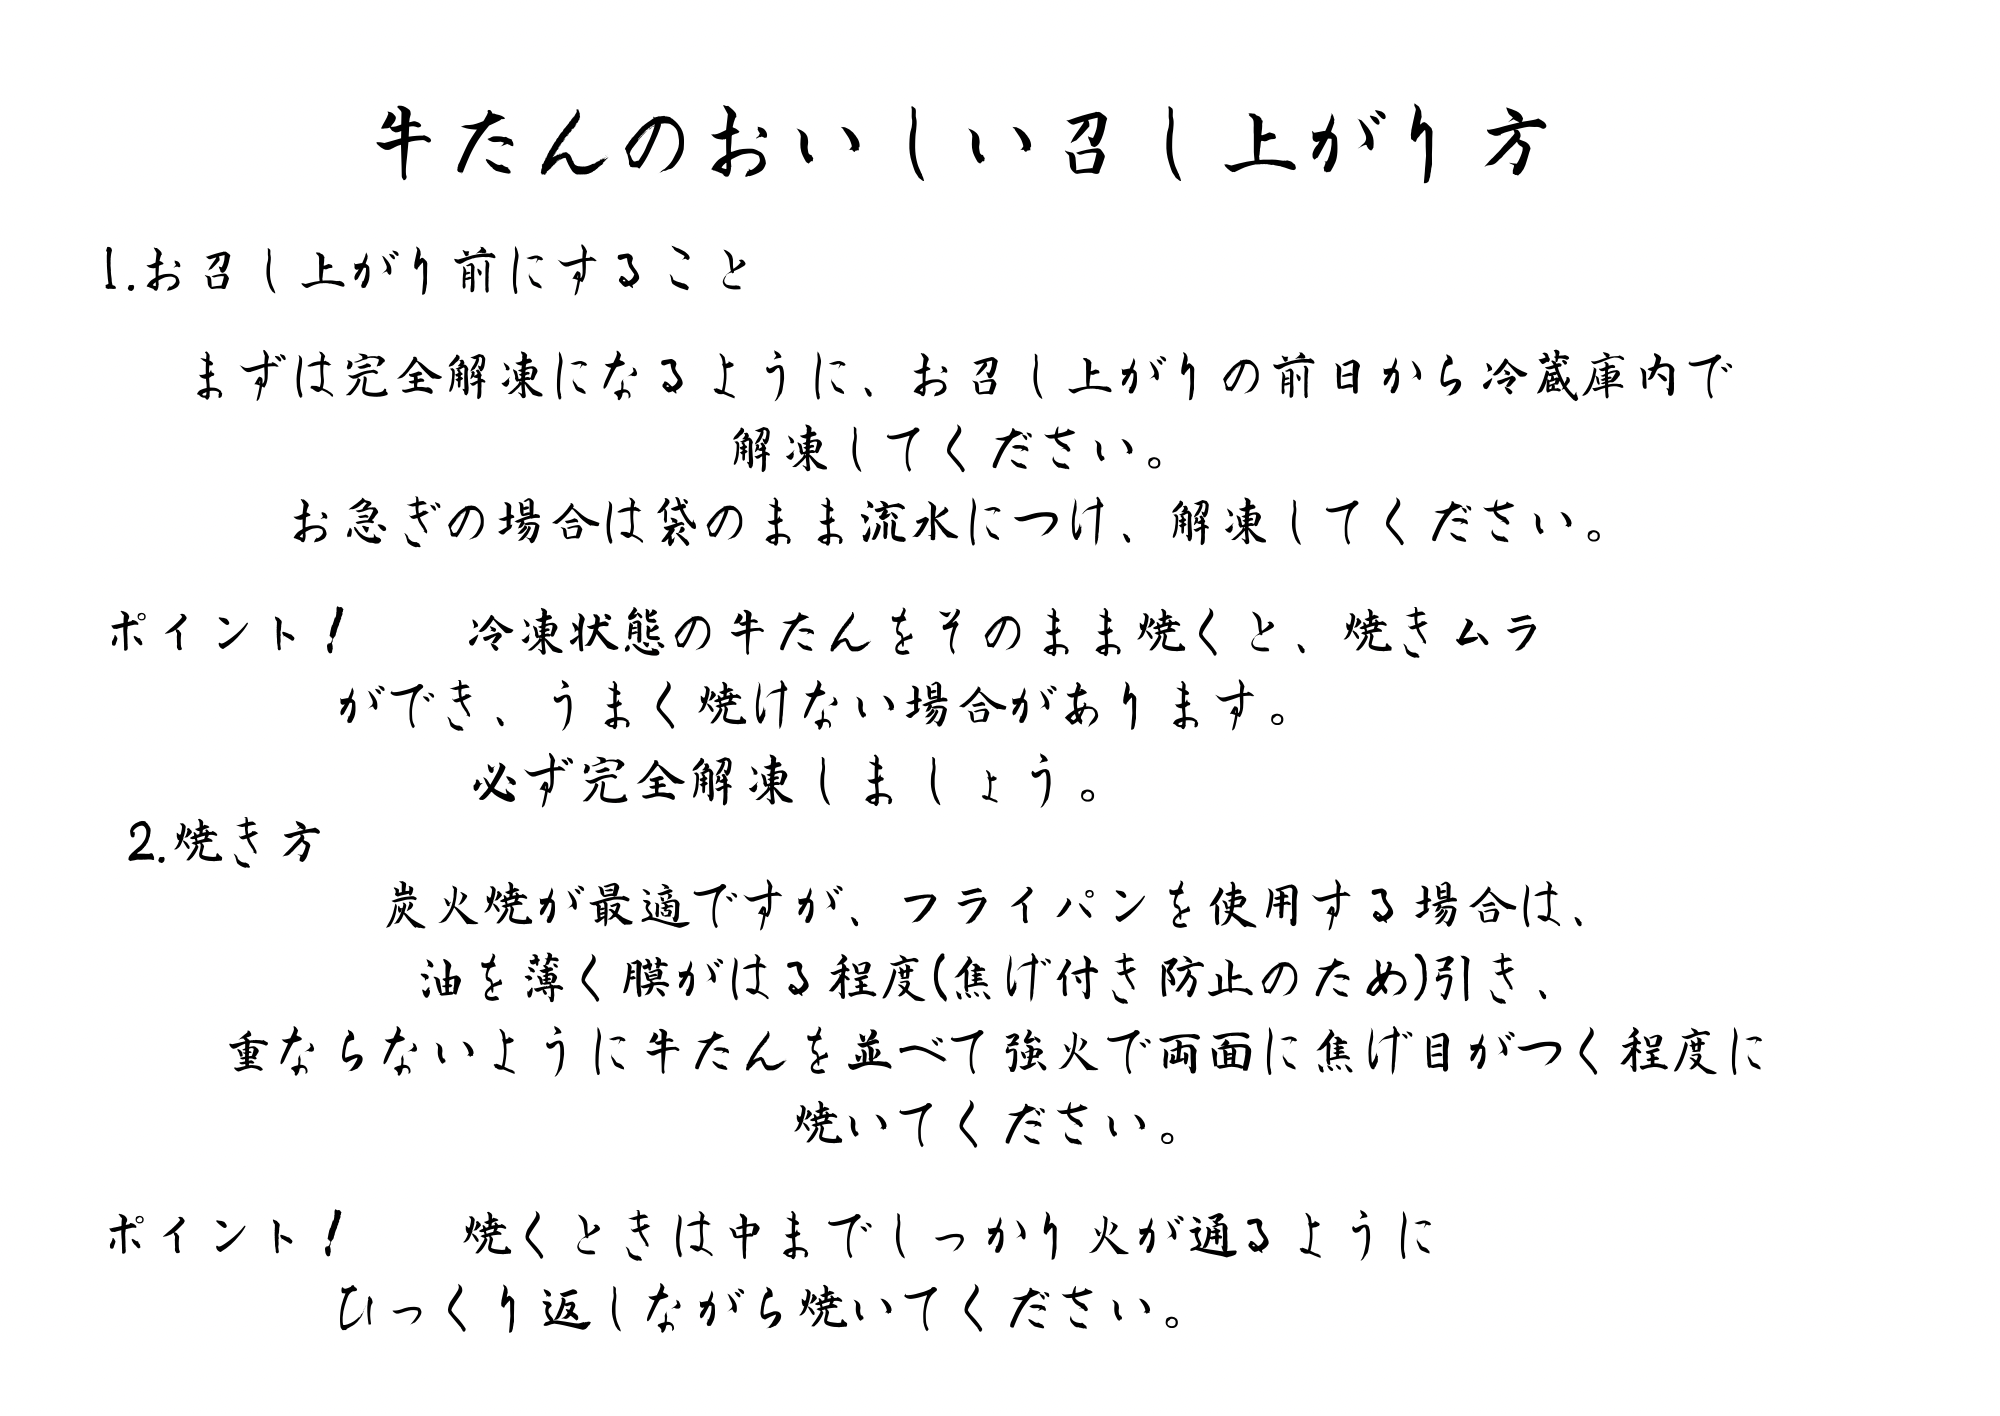 牛たんのおいしい召し上がり方
1.お召し上がり前にすること
まずは完全解凍になるように、お召し上がりの前日から冷蔵庫内で
解凍してください。
お急ぎの場合は袋のまま流水につけ、解凍してください。
ポイント! 冷凍状態の牛たんをそのまま焼くと、焼きムラ
ができ、うまく焼けない場合があります。
必ず完全解凍しましょう。
2.焼き方
炭火焼が最適ですが、フライパンを使用する場合は、
油を薄く膜がはる程度(焦げ付き防止のため)引き、
重ならないように牛たんを並べて強火で両面に焦げ目がつく程度に
焼いてください。
ポイント! 焼くときは中までしっかり火が通るように
ひっくり返しながら焼いてください。